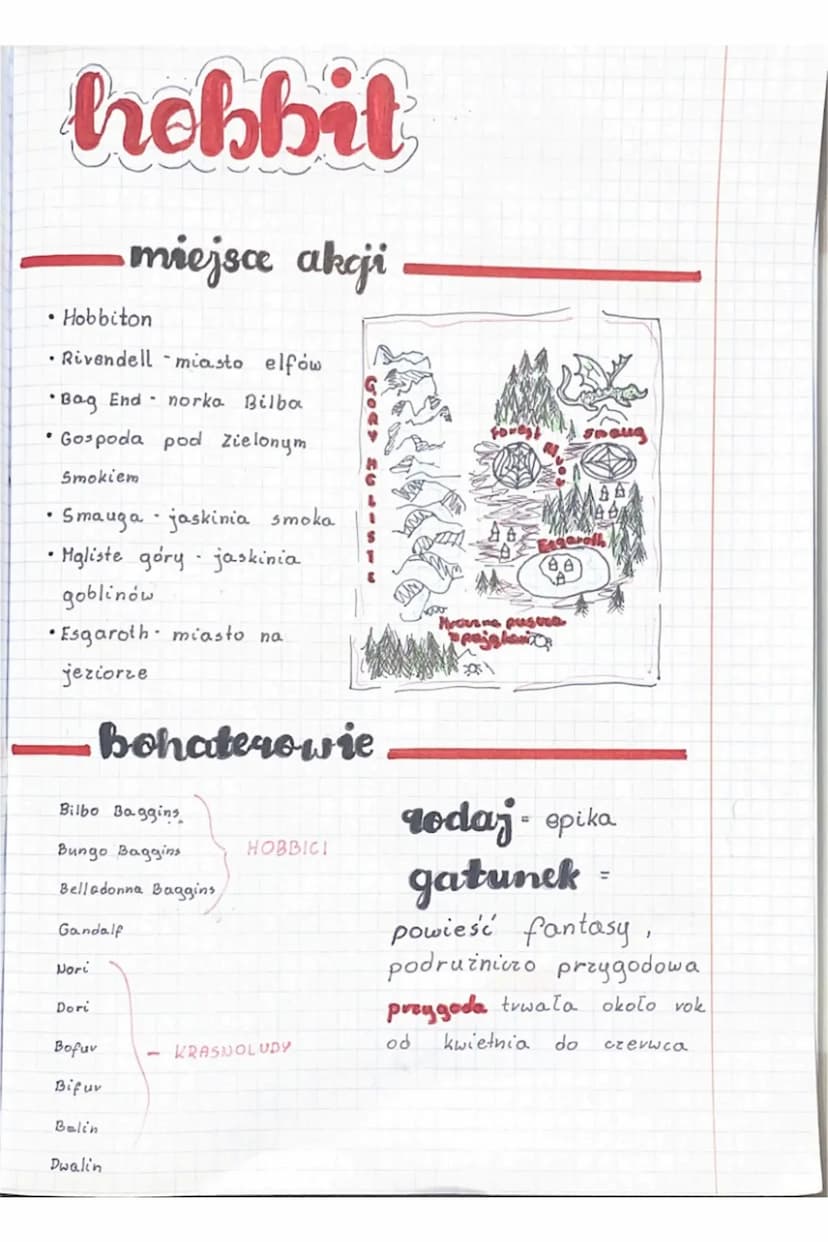 hobbit
miejsce akcji
• Hobbiton
• Rivendell - miasto elfów
• Bag End - norka Bilba
• Gospoda pod Zielonym
Smokiem
• Smauga - jaskinia smoka
• Mgliste góry - jaskinia
goblinów
• Esgaroth - miasto na
jeziorze
GÓRY MGLISTE
Smaug
Esgaroth
Mroczna puszcza
z pająkami
bohaterowie
Bilbo Baggins
Bungo Baggins
Belladonna Baggins
HOBBICI
Gandalf
Nori
Dori
Bofur
Bifur
Balin
Dwalin
- KRASNOLUDY
rodzaj = epika
gatunek =
powieść fantasy,
podrużniczo przygodowa
przygoda trwała około rok
od kwietnia do czerwca